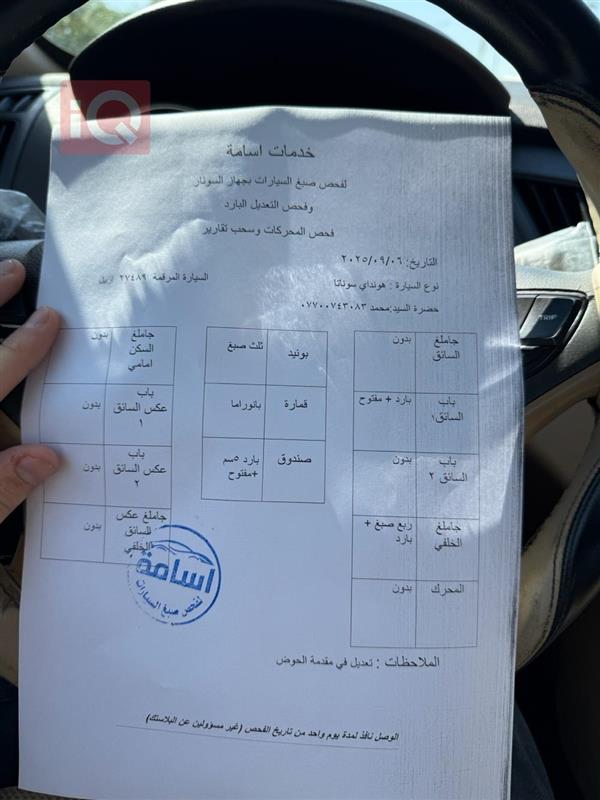 iQ
خدمات اسامة
لفحص صبغ السيارات بجهاز السونار
وفحص التعديل البارد
فحص المحركات وسحب تقارير
التاريخ: ٢٠٢٥/٠٩/٠٦
نوع السيارة : هونداي سوناتا
السيارة المرقمة ٢٧٤٨٩ اربل
حضرة السيد:محمد ٠٧٧٠٠٧٤٣٠٨٣
جاملغ السائق
بدون
باب السائق١
بارد + مفتوح
باب السائق ٢
بدون
جاملغ الخلفي
ربع صبغ + بارد
المحرك
بدون
بونيد
ثلث صبغ
قمارة
بانوراما
صندوق
بارد ٥سم +مفتوح
جاملغ السكن امامي
بدون
باب عكس السائق ١
بدون
باب عكس السائق ٢
بدون
جاملغ عكس السائق الخلفي
بدون
اسامة
لفحص صبغ السيارات
الملاحظات : تعديل في مقدمة الحوض
الوصل نافذ لمدة يوم واحد من تاريخ الفحص (غير مسؤولين عن البلاستك)
TRIP